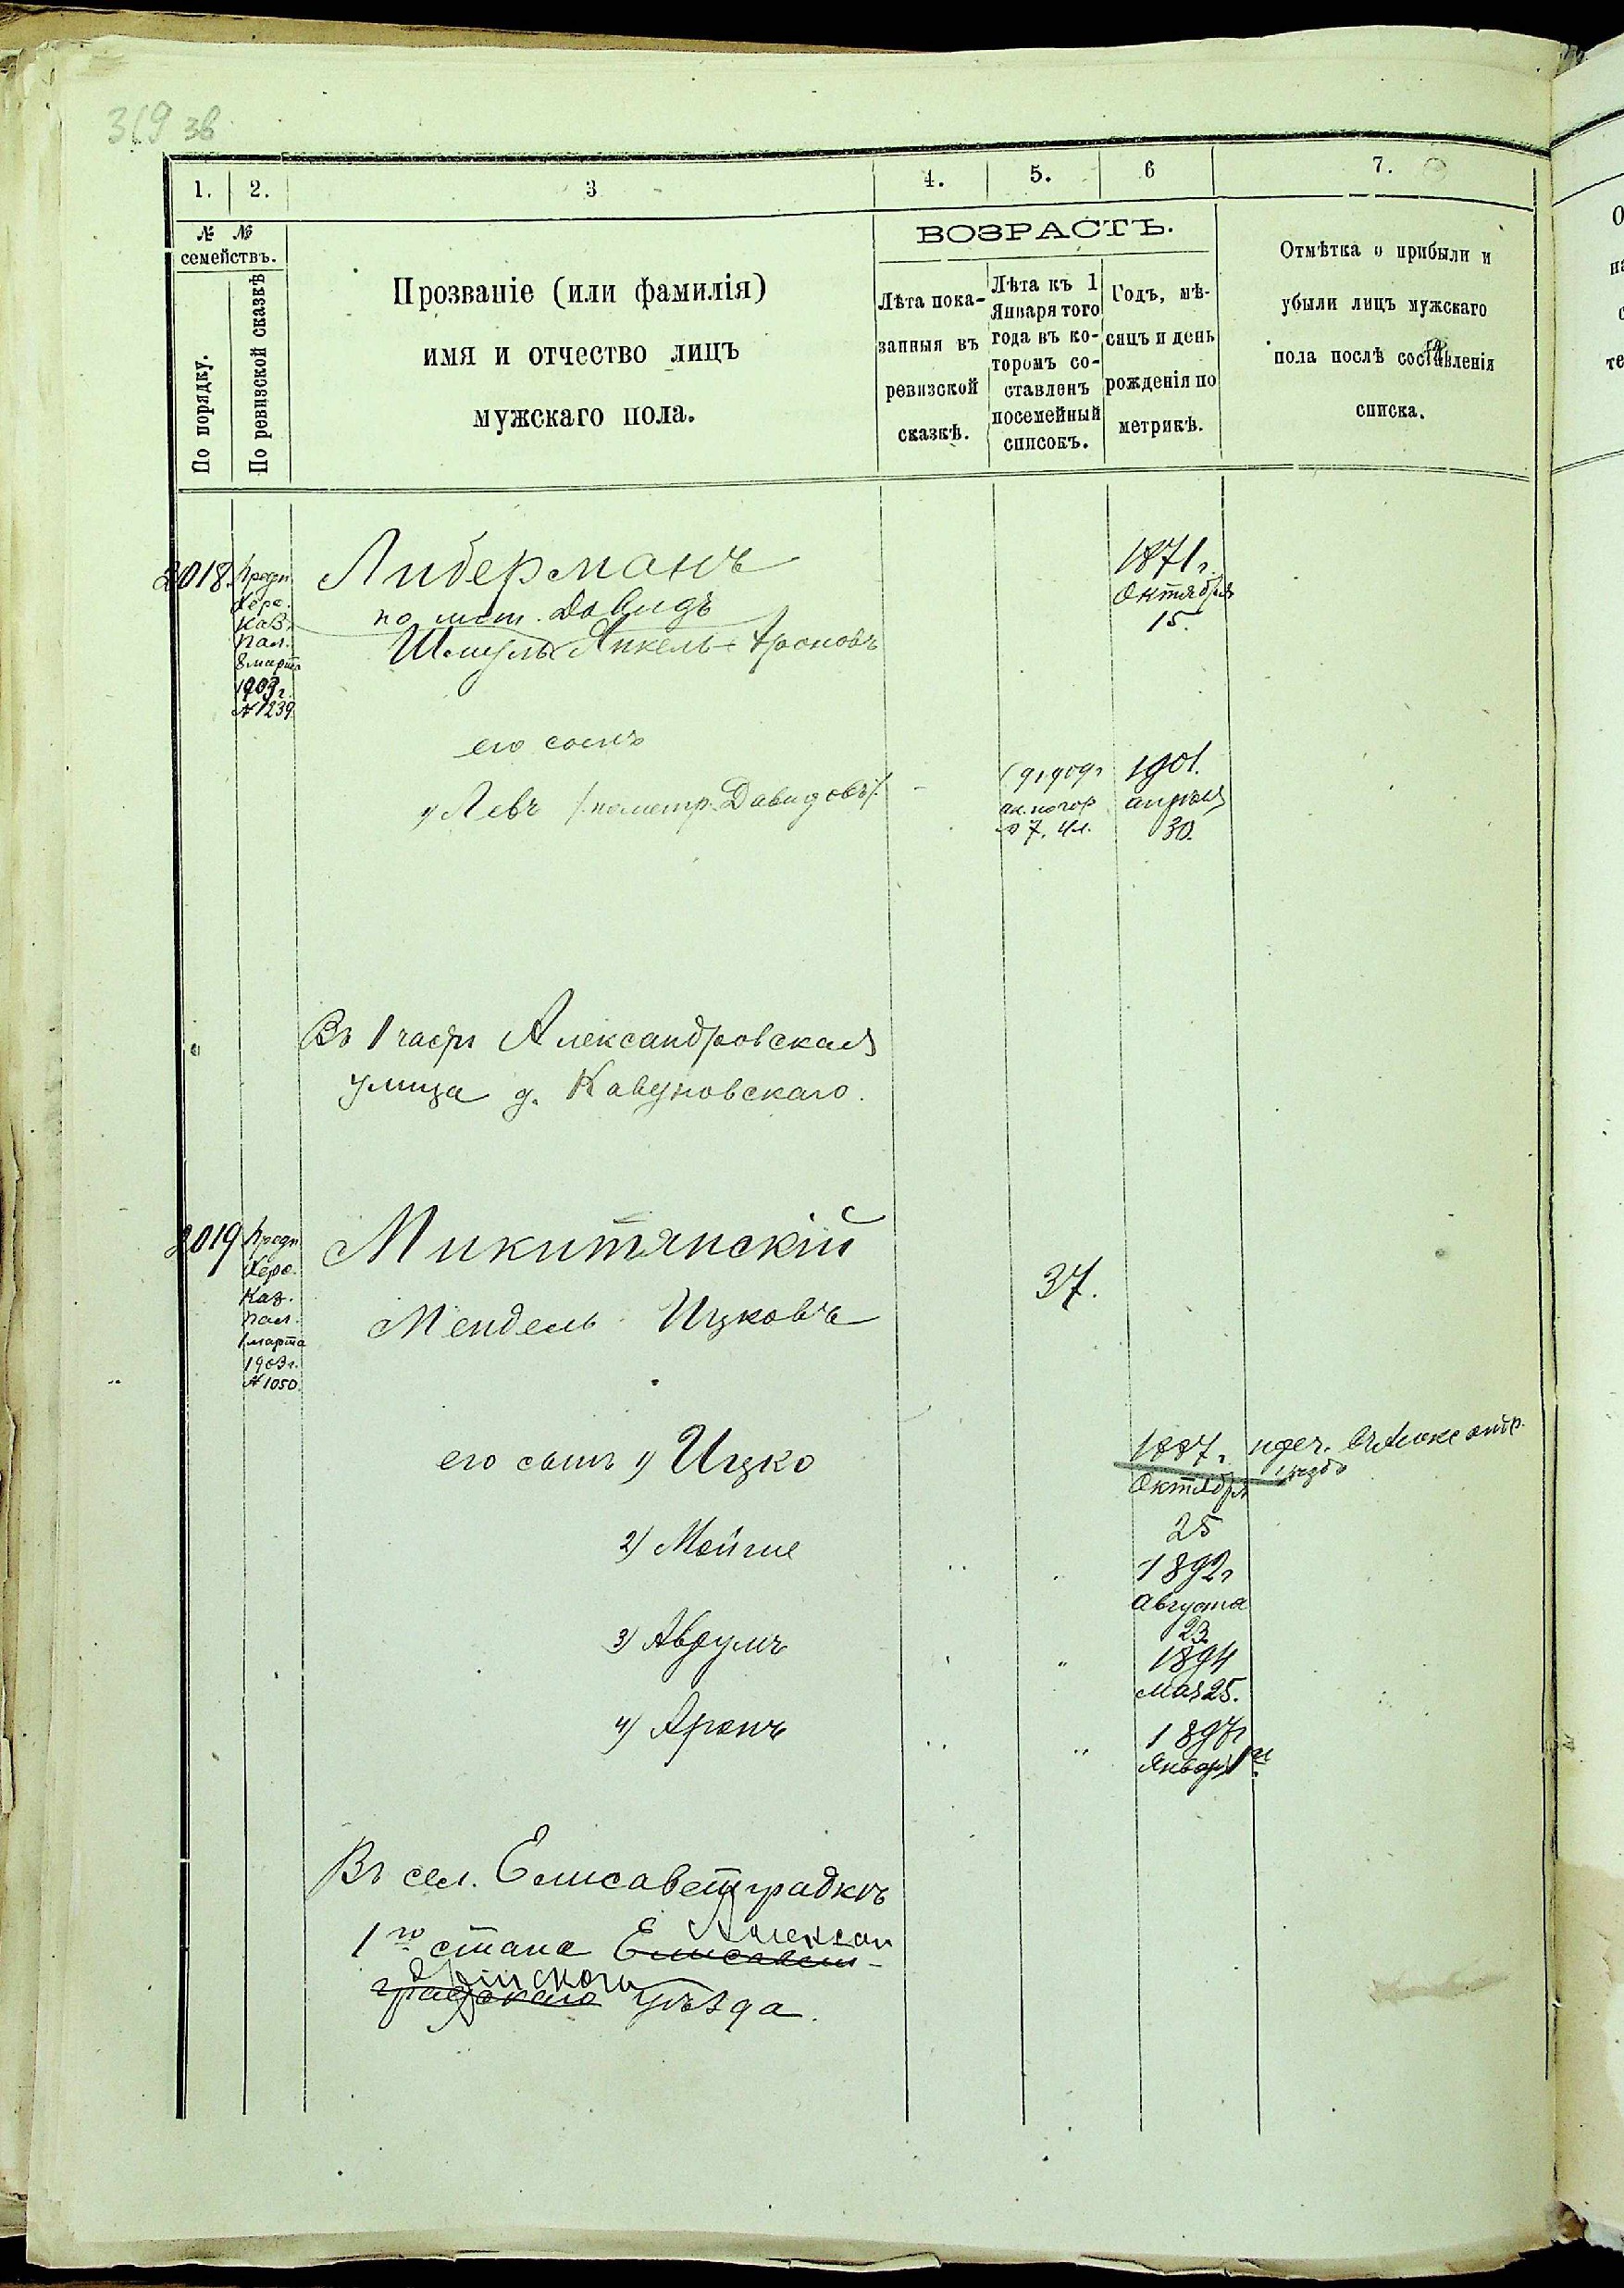 319 зв
1. 2. 3 4. 5. 6 7.
№ №
семействъ.
По порядку.
По ревизской сказкѣ
Прозваніе (или фамилія)
имя и отчество лицъ
мужскаго пола.
ВОЗРАСТЪ.
Лѣта пока-
занныя въ
ревизской
сказкѣ.
Лѣта къ 1
Января того
года въ ко-
торомъ со-
ставленъ
посемейный
списокъ.
Годъ, мѣ-
сяцъ и день
рожденія по
метрикѣ.
Отмѣтка о прибыли и
убыли лицъ мужскаго
пола послѣ составленія
списка.
2018.
Предп.
Херс.
Каз.
пал.
8 марта
1903 г.
№ 1239
Либерманъ
по мет. Давидъ
Шмуль Янкель-Ароновъ
1871 г.
Октября
15.
его сынъ
1) Левъ /по метр. Давидовъ/.
7. Чл.
1901.
апрѣля
30.
Въ 1 части Александровская
улица д. Кавуновскаго.
2019
Предп.
Херс.
Каз.
пал.
1 марта
1903 г.
№ 1050.
Микитянскій
Мендель Ицковъ
37.
его сынъ 1) Ицко
1887 г.
Октября
25
2) Мойше
1892 г
Августа
23
3) Аврумъ
1894
Мая 25.
4) Аронъ
1897 г
Января 1го
Въ сел. Елисаветградкѣ
1го стана Елисавет-
Алексан
градскаго уѣзда.
дрійскаго